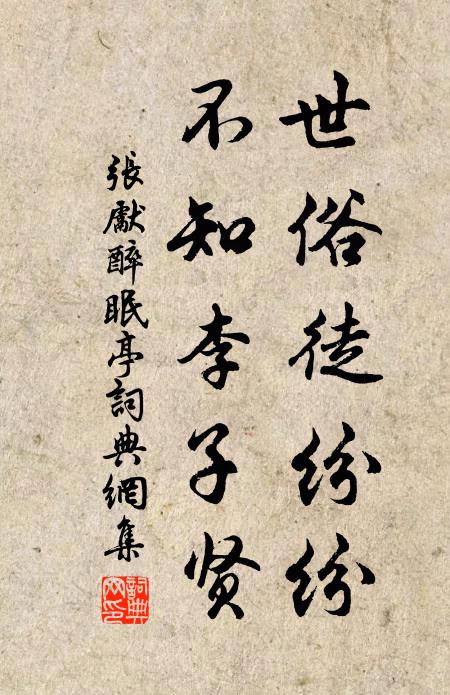 世俗徒纷纷
不知李子贤
張獻醉眠亭詞典網集
詞典网印